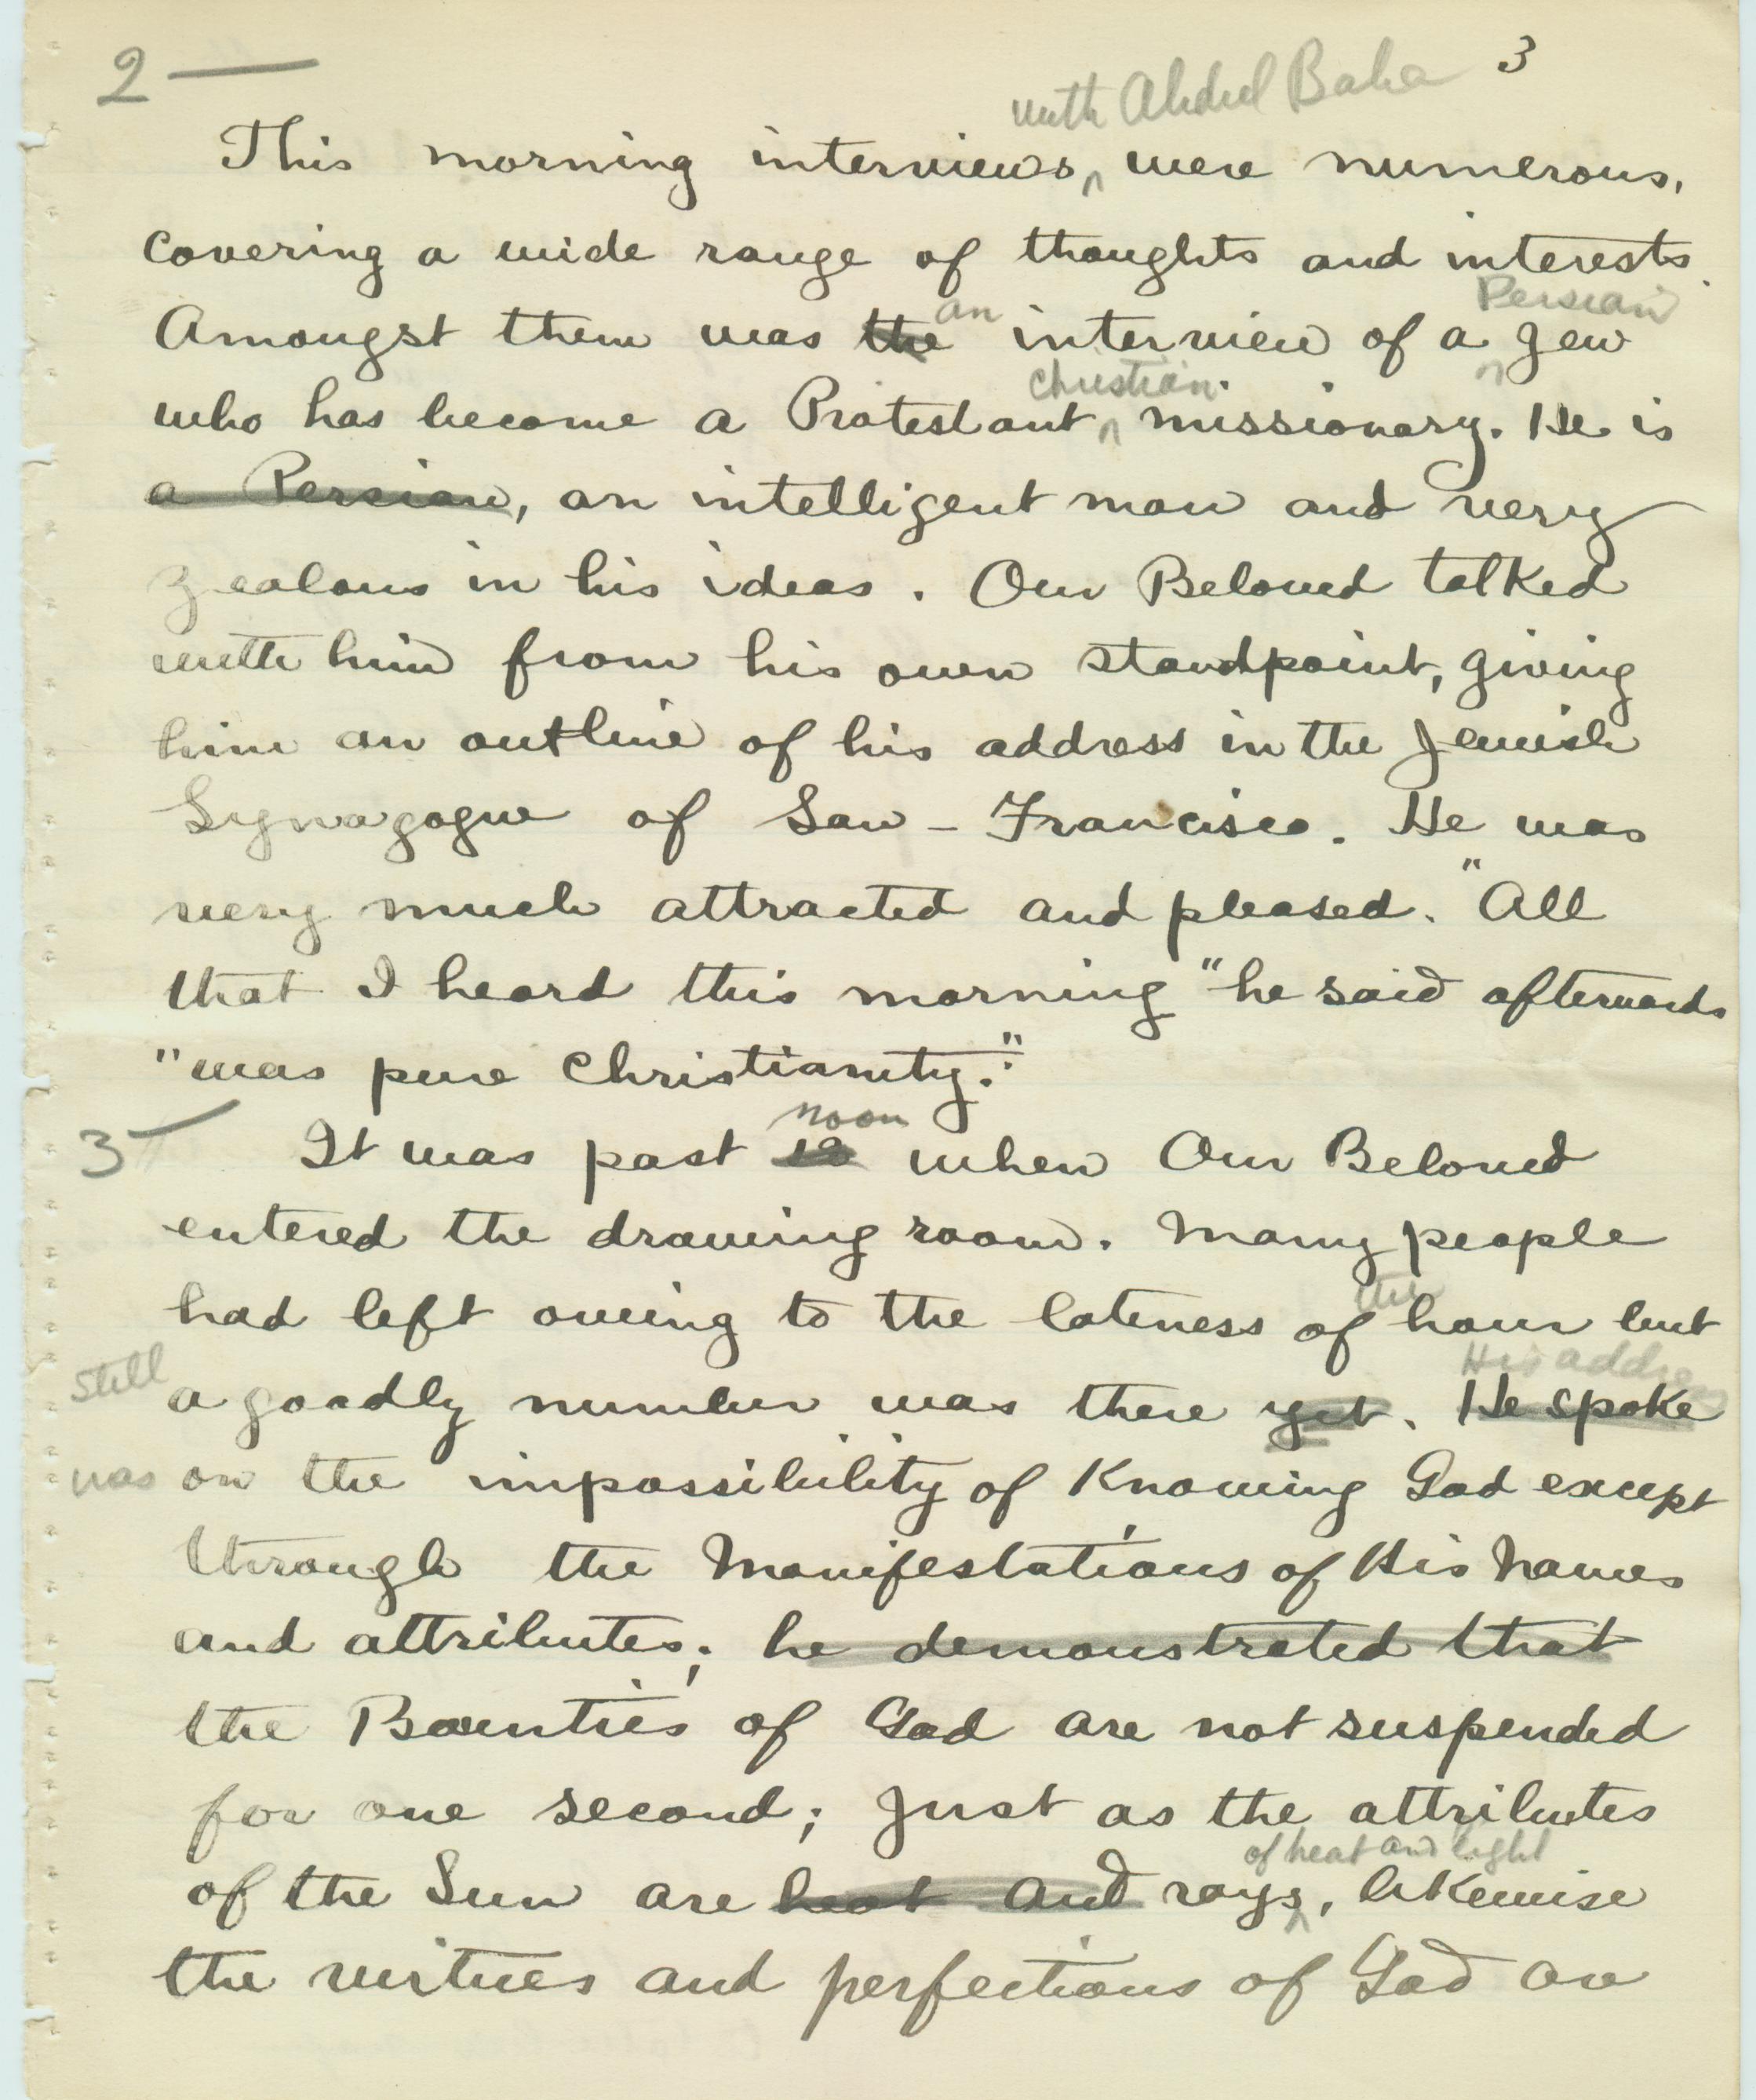 2 — 3
with Abdul Baha
This morning interviews, were numerous,
covering a wide range of thoughts and interests.
an Persian
Amongst them was the interview of a Jew
Christian
who has become a Protestant missionary. He is
a Persian, an intelligent man and very
zealous in his ideas. Our Beloved talked
with him from his own standpoint, giving
him an outline of his address in the Jewish
Synagogue of San-Francisco. He was
very much attracted and pleased. "All
that I heard this morning "he said afterwards
"was pure Christianity."
noon
3 — It was past 12 when Our Beloved
entered the drawing room. Many people
the
had left owing to the lateness of hour but
His address
still a goodly number was there yet. He spoke
was on the impossibility of Knowing God except
through the Manifestations of His Names
and attributes; he demonstrated that
the Bounties of God are not suspended
for one second; Just as the attributes
of heat and light
of the Sun are heat and rays, likewise
the virtues and perfections of God are